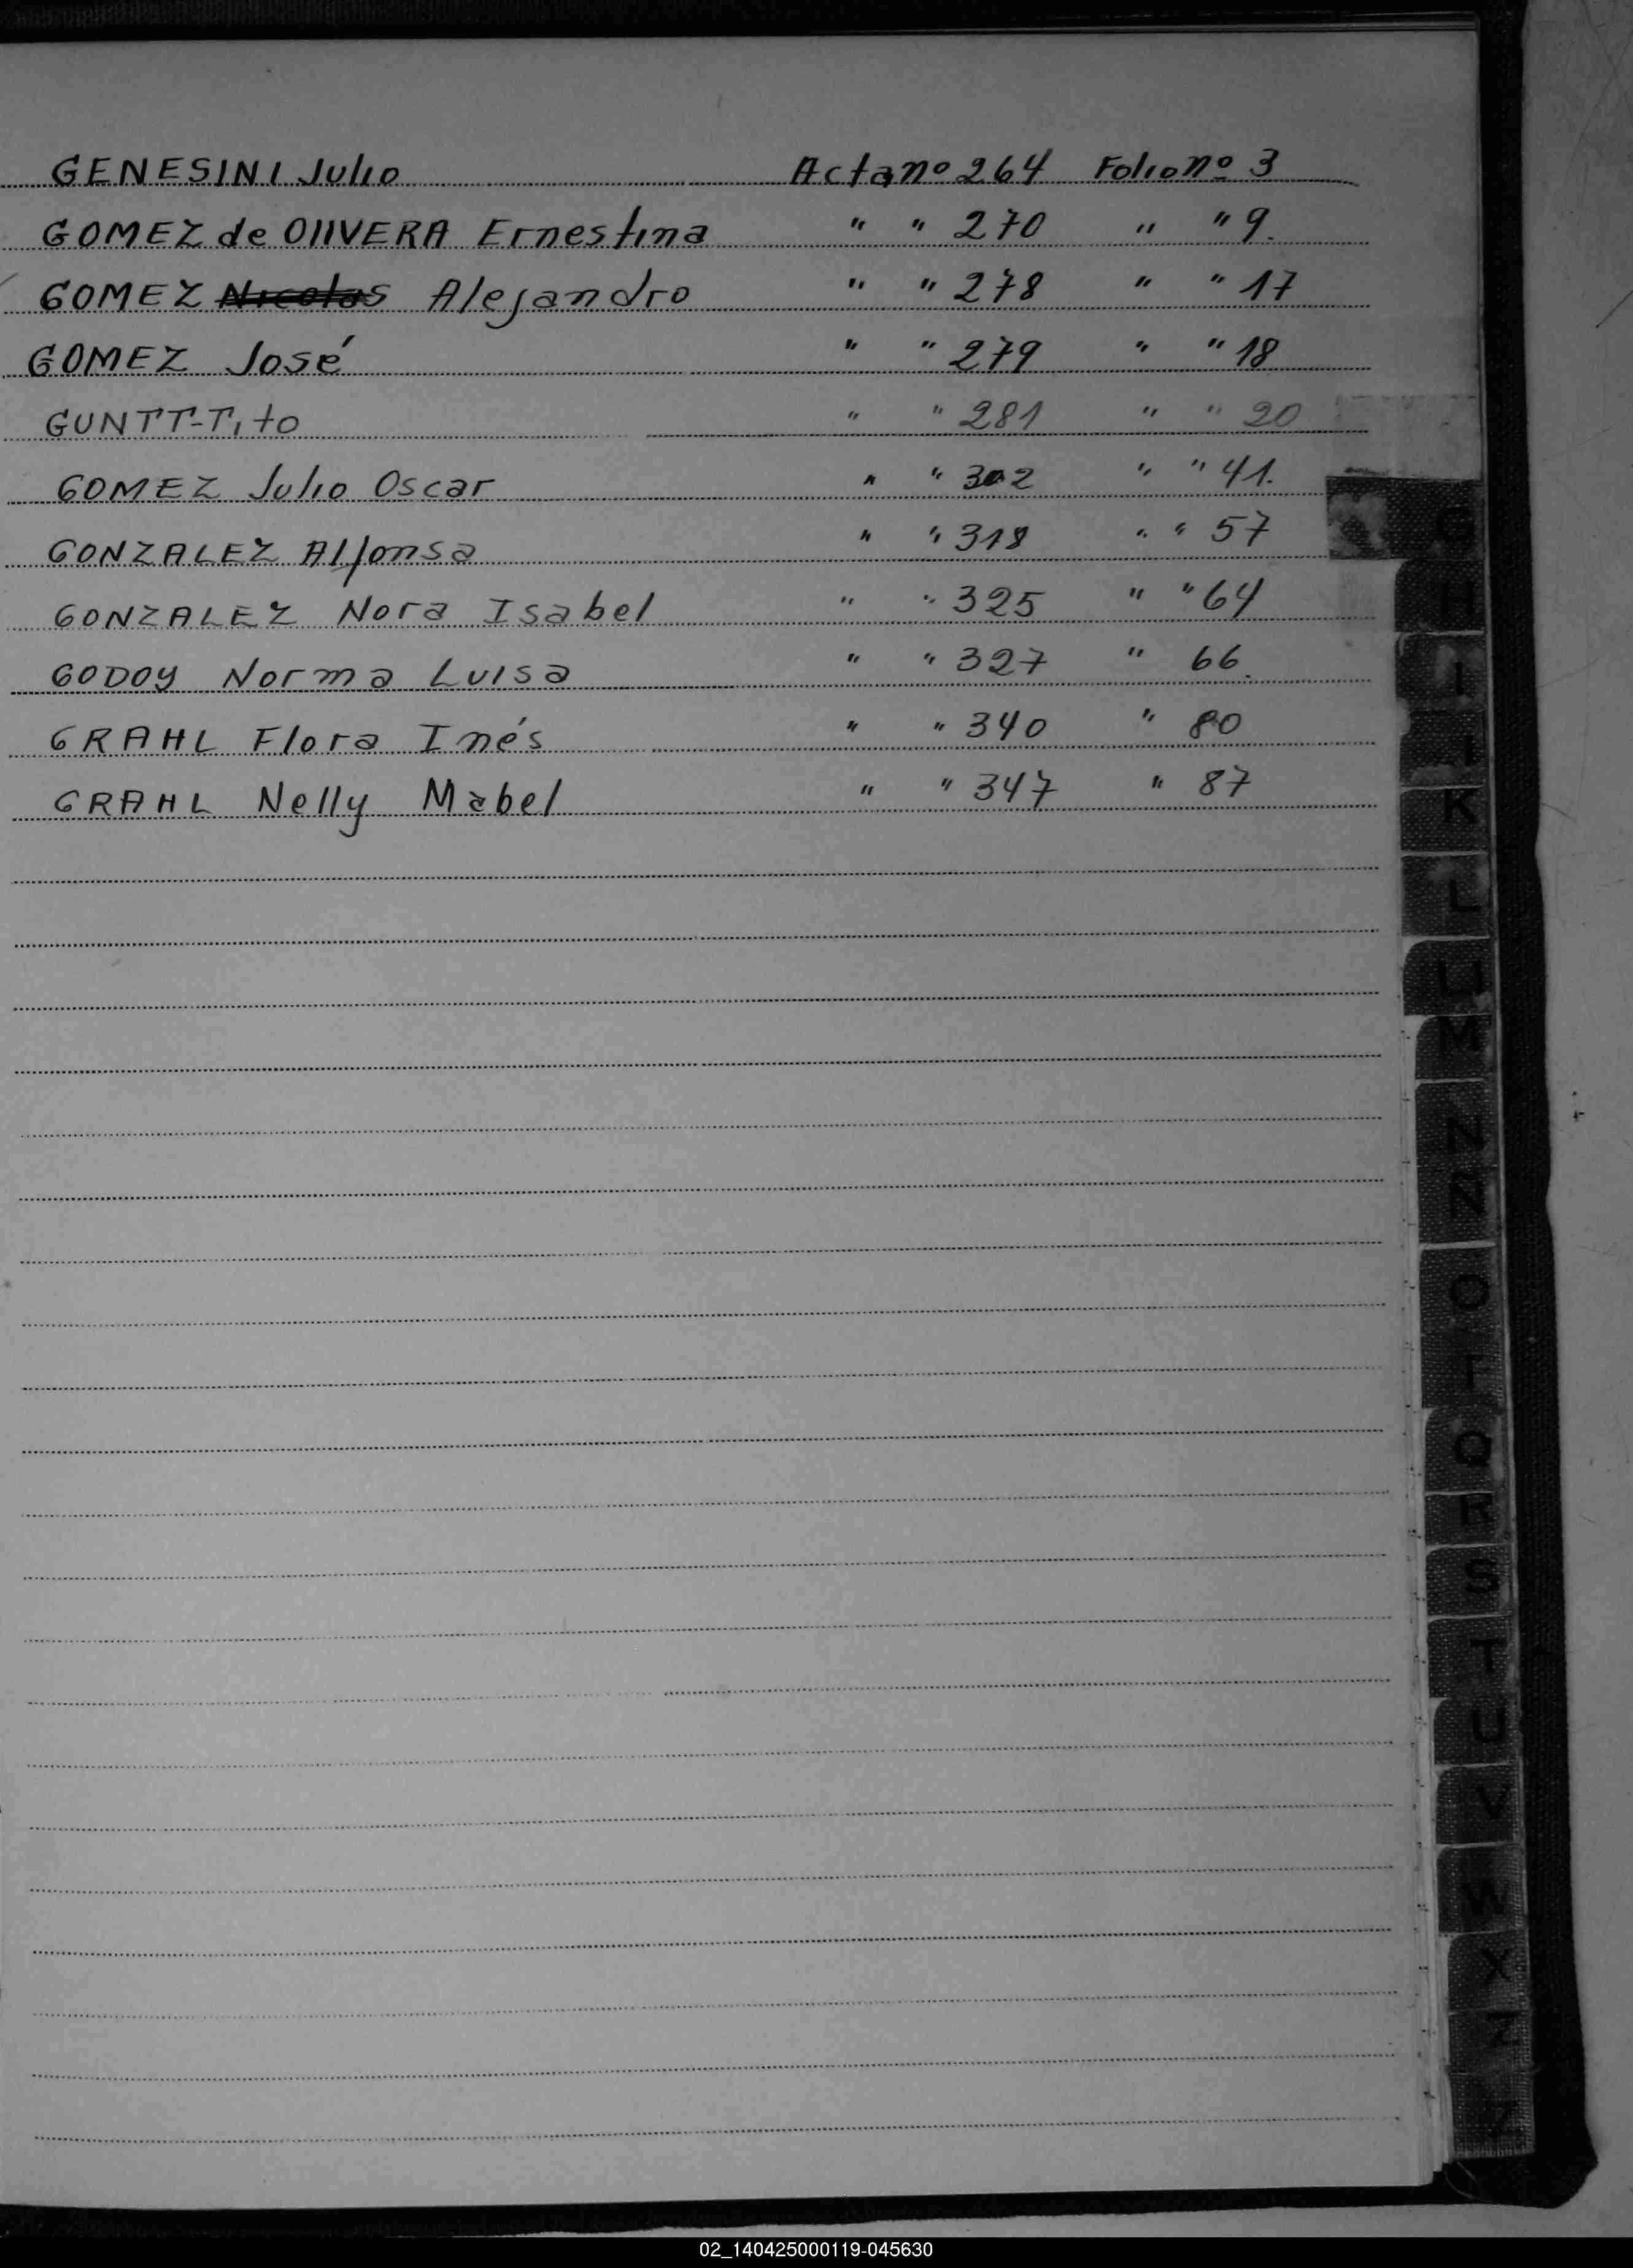 GENESINI Julio Acta nº 264 Folio nº 3
GOMEZ de OlIVERA Ernestina " " 270 " " 9.
GOMEZ Nicolas Alejandro " " 278 " " 17
GOMEZ José " " 279 " " 18
GUNTT-Tito " " 281 " " 20
GOMEZ Julio Oscar " " 302 " " 41.
GONZALEZ Alfonsa " " 318 " " 57
GONZALEZ Nora Isabel " " 325 " " 64
GODOY Norma Luisa " " 327 " 66.
GRAHL Flora Inés " " 340 " 80
GRAHL Nelly Mabel " " 347 " 87
I
K
L
M
N
Ñ
O
Q
R
S
T
U
V
W
X
Z
02_140425000119-045630